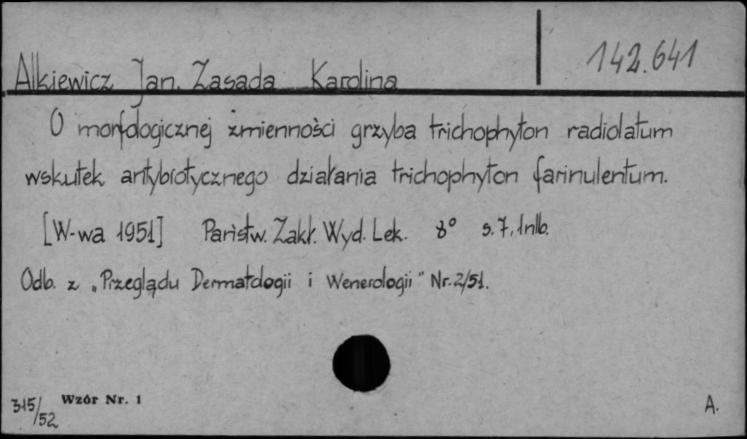 142.641
Alkiewicz Jan. Zasada Karolina
O morfologicznej zmienności grzyba trichophyton radiolatum
wskutek antybiotycznego działania trichophyton farinulentum.
[W-wa 1951] Państw. Zakł. Wyd. Lek. 8° s. 7, 1nlb.
Odb. z „Przeglądu Dermatologii i Wenerologii" Nr. 2/51.
315/52 Wzór Nr. 1 A.